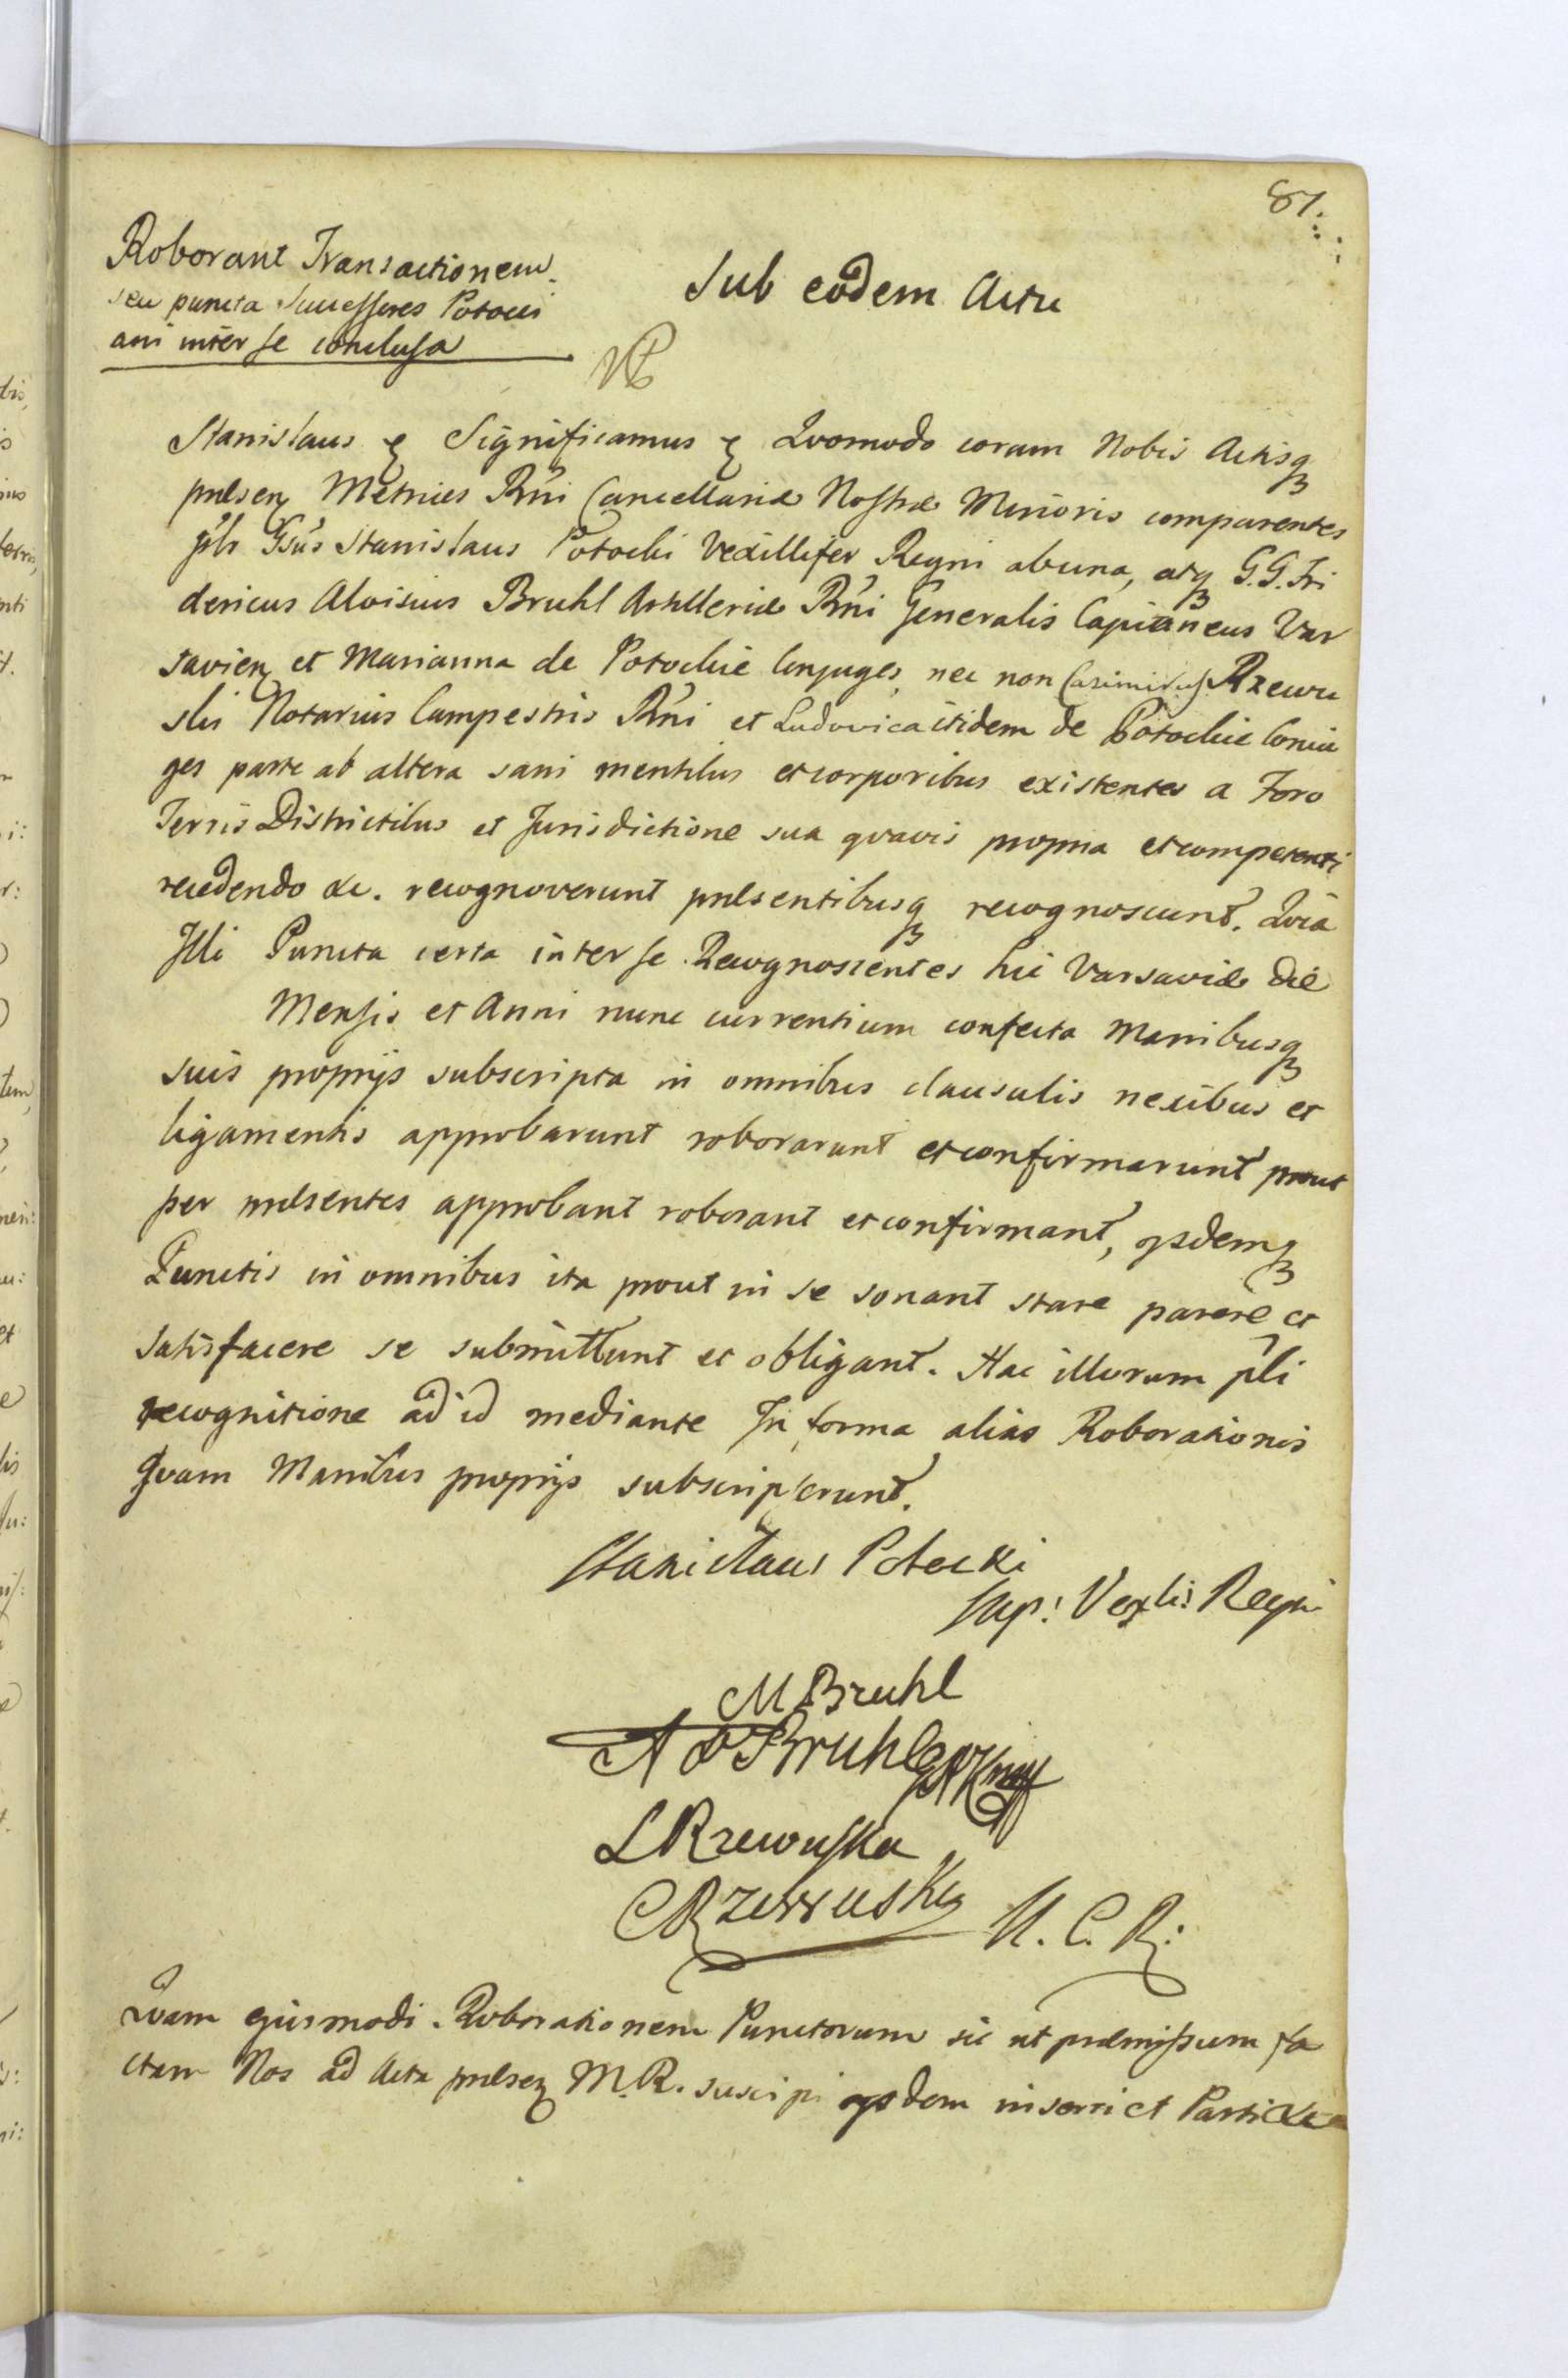 87.
Roborant Transactionem
seu puncta Successores Potocci
ani inter se conclusa
Sub eodem Actu
Stanislaus Significamus Quomodo coram Nobis Actisq
pnlsen Metrices Rni Cancellariæ Nostræ Minoris comparentes
Stanislaus Potocki Vexillifer Regni ab una, atq G.G. Fri
dericus Aloisius Bruhl Artilleriæ Rni Generalis Capitaneus Var
savien et Marianna de Potockie Conjuges, nec non Casimirus Rzewu
ski Notarius Campestris Rni et Ludovica itidem de Potockie Conju
ges parte ab altera sani mentibus et corporibus existentes a Foro
Terris Districtibus et Jurisdictione sua quavis propria et competenti
recedendo &c. recognoverunt pnlsentibusq recognoscunt. Quia
Illi Puncta certa inter se Recognoscentes hic Varsaviæ die
Mensis et Anni nunc currentium confecta Manibusq
suis proprijs subscripta in omnibus clausulis nexibus et
ligamentis approbarunt roborarunt et confirmarunt prout
per pnlsentes approbant roborant et confirmant, ijsdemq
Punctis in omnibus ita prout in se sonant stare parere et
satisfacere se submittunt et obligant. Hac illorum pli
recognitione ad id mediante In forma alias Roborationis
Quam Manibus proprijs subscripserunt.
Stanislaus Potocki
Sup: Vexlis Regni
M Bruhl
A F Bruhl
L Rzewuska
C Rzewuski N. C. R:
Quam ejusmodi Roborationem Punctorum sic ut præmissum fa
ctam Nos ad Acta pnlsen M.R. suscipi ijsdem inserri et Parti &c